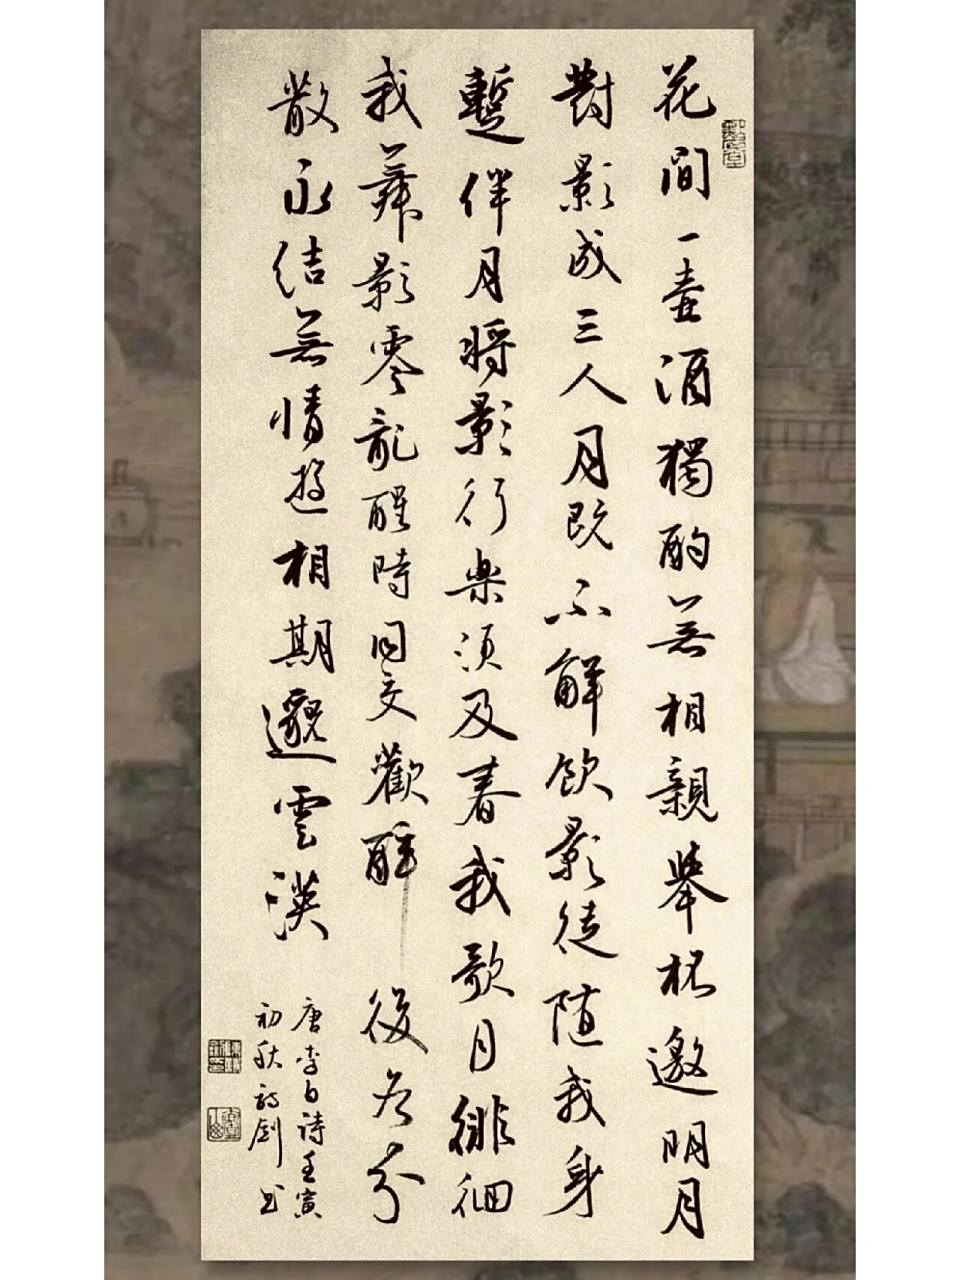 花間一壺酒獨酌無相親舉杯邀明月
對影成三人月既不解飲影徒随我身
暫伴月將影行楽須及春我歌月徘徊
我舞影零亂醒時同交歡醉後各分
散永結無情遊相期邈雲漢
唐李白诗壬寅
初秋剑书